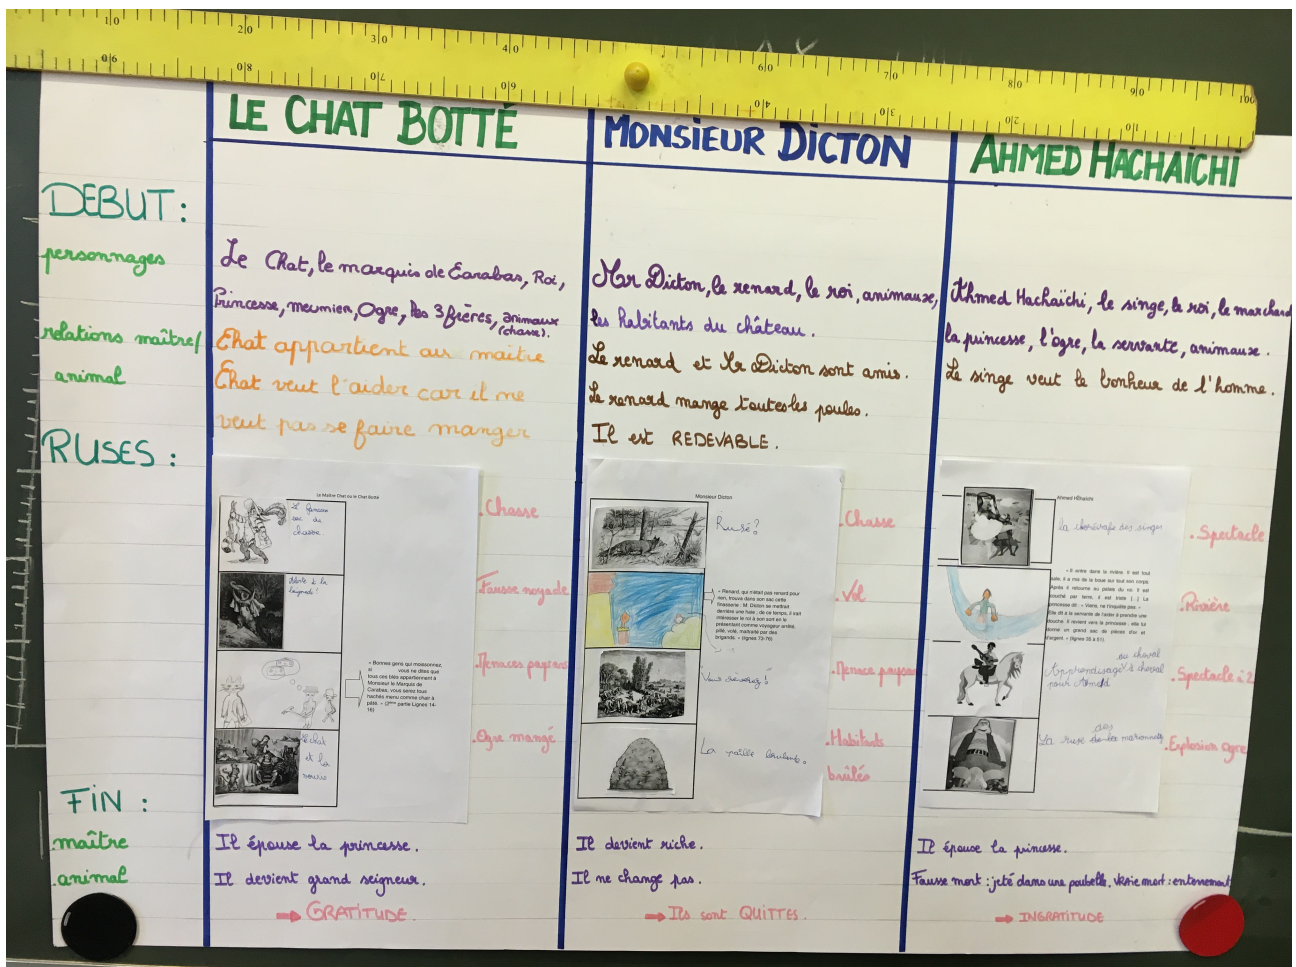 LE CHAT BOTTÉ
MONSIEUR DICTON
AHMED HACHAÏCHI
DEBUT :
personnages
relations maître/
animal
RUSES :
FIN :
maître
.animal
Le Chat, le marquis de Carabas, Roi,
Princesse, meunier, Ogre, les 3 frères, animaux
(chasse).
Chat appartient au maître
Chat veut l'aider car il ne
veut pas se faire manger
Le Maître Chat ou le Chat Botté
Le fameux
sac de
chasse
la
baignade !
« Bonnes gens qui moissonnez,
si vous ne dites que
tous ces blés appartiennent à
Monsieur le Marquis de
Carabas, vous serez tous
hachés menu comme chair à
pâté. » (2ème partie Lignes 14-
16)
le chat
et la
souris
.Chasse
.Fausse noyade
.Menaces paysans
.Ogre mangé
Il épouse la princesse.
Il devient grand seigneur.
GRATITUDE.
Mr Dicton, le renard, le roi, animaux,
les habitants du château.
Le renard et Mr Dicton sont amis.
Le renard mange toutes les poules.
Il est REDEVABLE.
Monsieur Dicton
Rusé ?
« Renard, qui n'était pas renard pour
rien, trouva dans son sac cette
finasserie : M. Dicton se mettrait
derrière une haie ; de ce temps, il irait
intéresser le roi à son sort en le
présentant comme voyageur arrêté,
pillé, volé, maltraité par des
brigands. » (lignes 73-76)
La paille brulante.
.Chasse
.Vol
.Menace paysan
.Habitants
brûlés
Il devient riche.
Il ne change pas.
Ils sont QUITTES.
Ahmed Hachaïchi, le singe, le roi, le marchand
la princesse, l'ogre, la servante, animaux.
Le singe veut le bonheur de l'homme.
Ahmed Hachaïchi
la des singes
« Il entre dans la rivière. Il est tout
sale, il a mis de la boue sur tout son corps.
Après il retourne au palais du roi. Il est
couché par terre, il est triste [...] La
princesse dit : « Viens, ne t'inquiète pas. »
Elle dit à la servante de l'aider à prendre une
douche. Il revient vers la princesse ; elle lui
donne un grand sac de pièces d'or et
d'argent. » (lignes 35 à 51).
au cheval
Apprendisage à cheval
pour Ahmed
des
La ruse de les marionnettes
.Spectacle
.Rivière
.Spectacle à 2
.Explosion ogre
Il épouse la princesse.
Fausse mort : jeté dans une poubelle, vraie mort : enterrement
INGRATITUDE